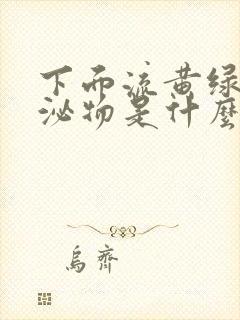 下而流黄绿
泌物是什麼
烏齊